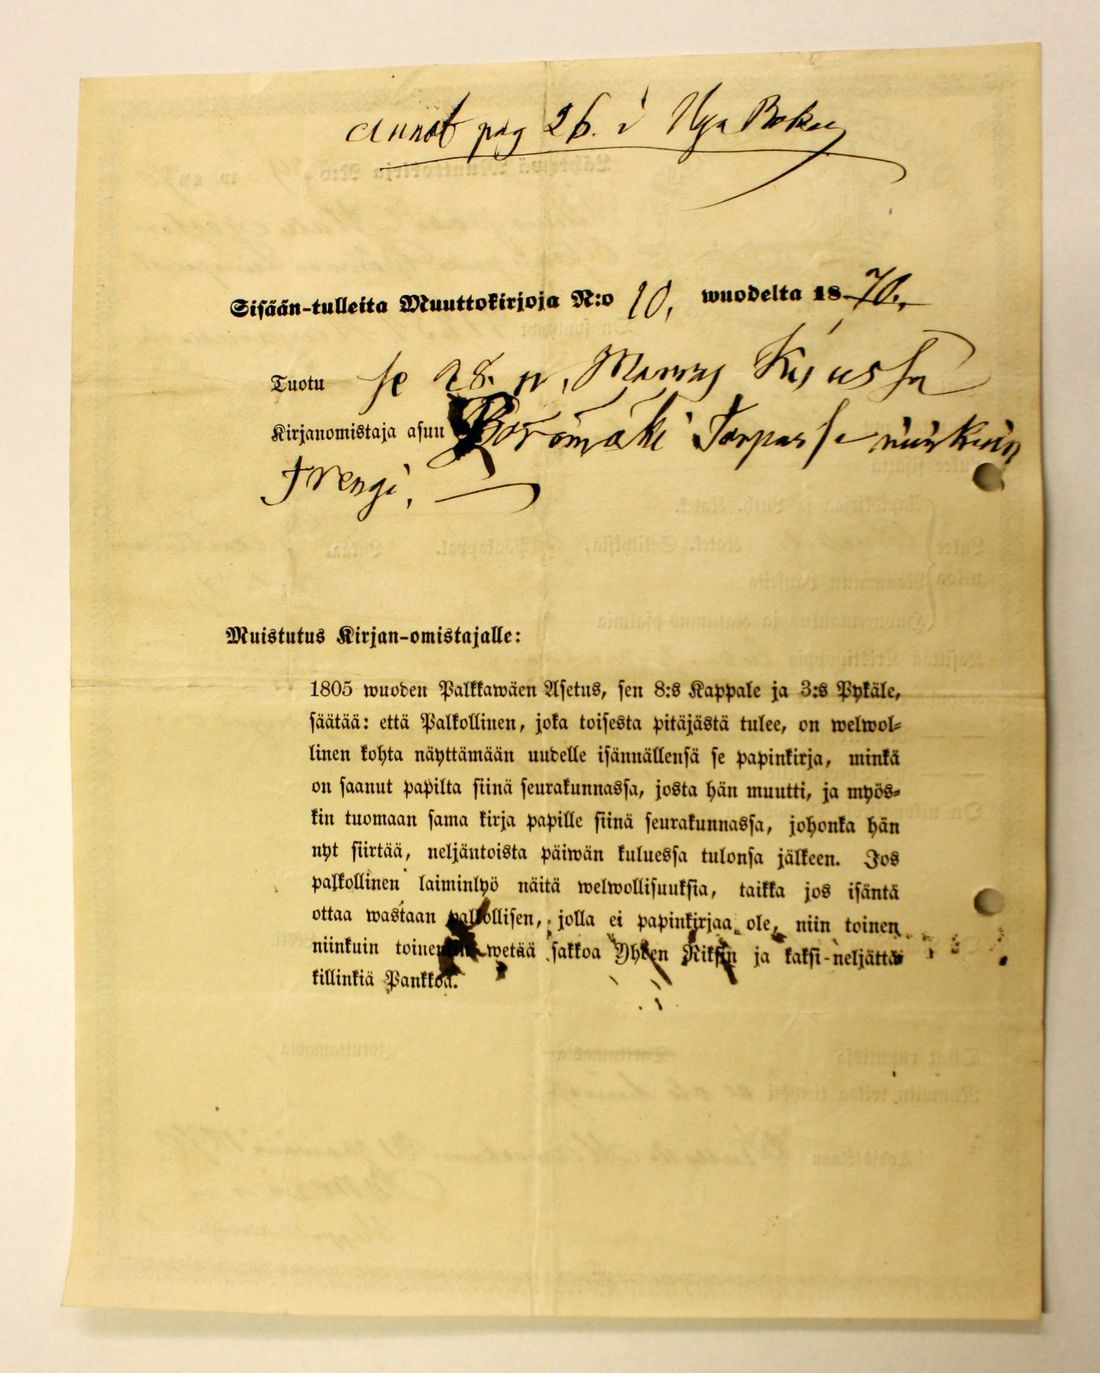 Annot pag 26. i Nya Boken
Sisään-tulleita Muuttokirjoja N:o 10, wuodelta 1870.
Tuotu se 28. p, Marras Kuussa
Kirjanomistaja asuu Torpassa niinkuin
Trengi,
Muistutus Kirjan-omistajalle:
1805 wuoden Palkkawäen Asetus, sen 8:s Kappale ja 3:s Pykäle,
säätää: että Palkollinen, joka toisesta pitäjästä tulee, on welwol-
linen kohta näyttämään uudelle isännällensä se papinkirja, minkä
on saanut papilta siinä seurakunnassa, josta hän muutti, ja myös-
kin tuomaan sama kirja papille siinä seurakunnassa, johonka hän
nyt siirtää, neljäntoista päiwän kuluessa tulonsa jälkeen. Jos
palkollinen laiminlyö näitä welwollisuuksia, taikka jos isäntä
ottaa wastaan palkollisen, jolla ei papinkirjaa ole, niin toinen
niinkuin toinenkin wetää sakkoa Yhden Riksin ja kaksi-neljättä
killinkiä Pankkoa.